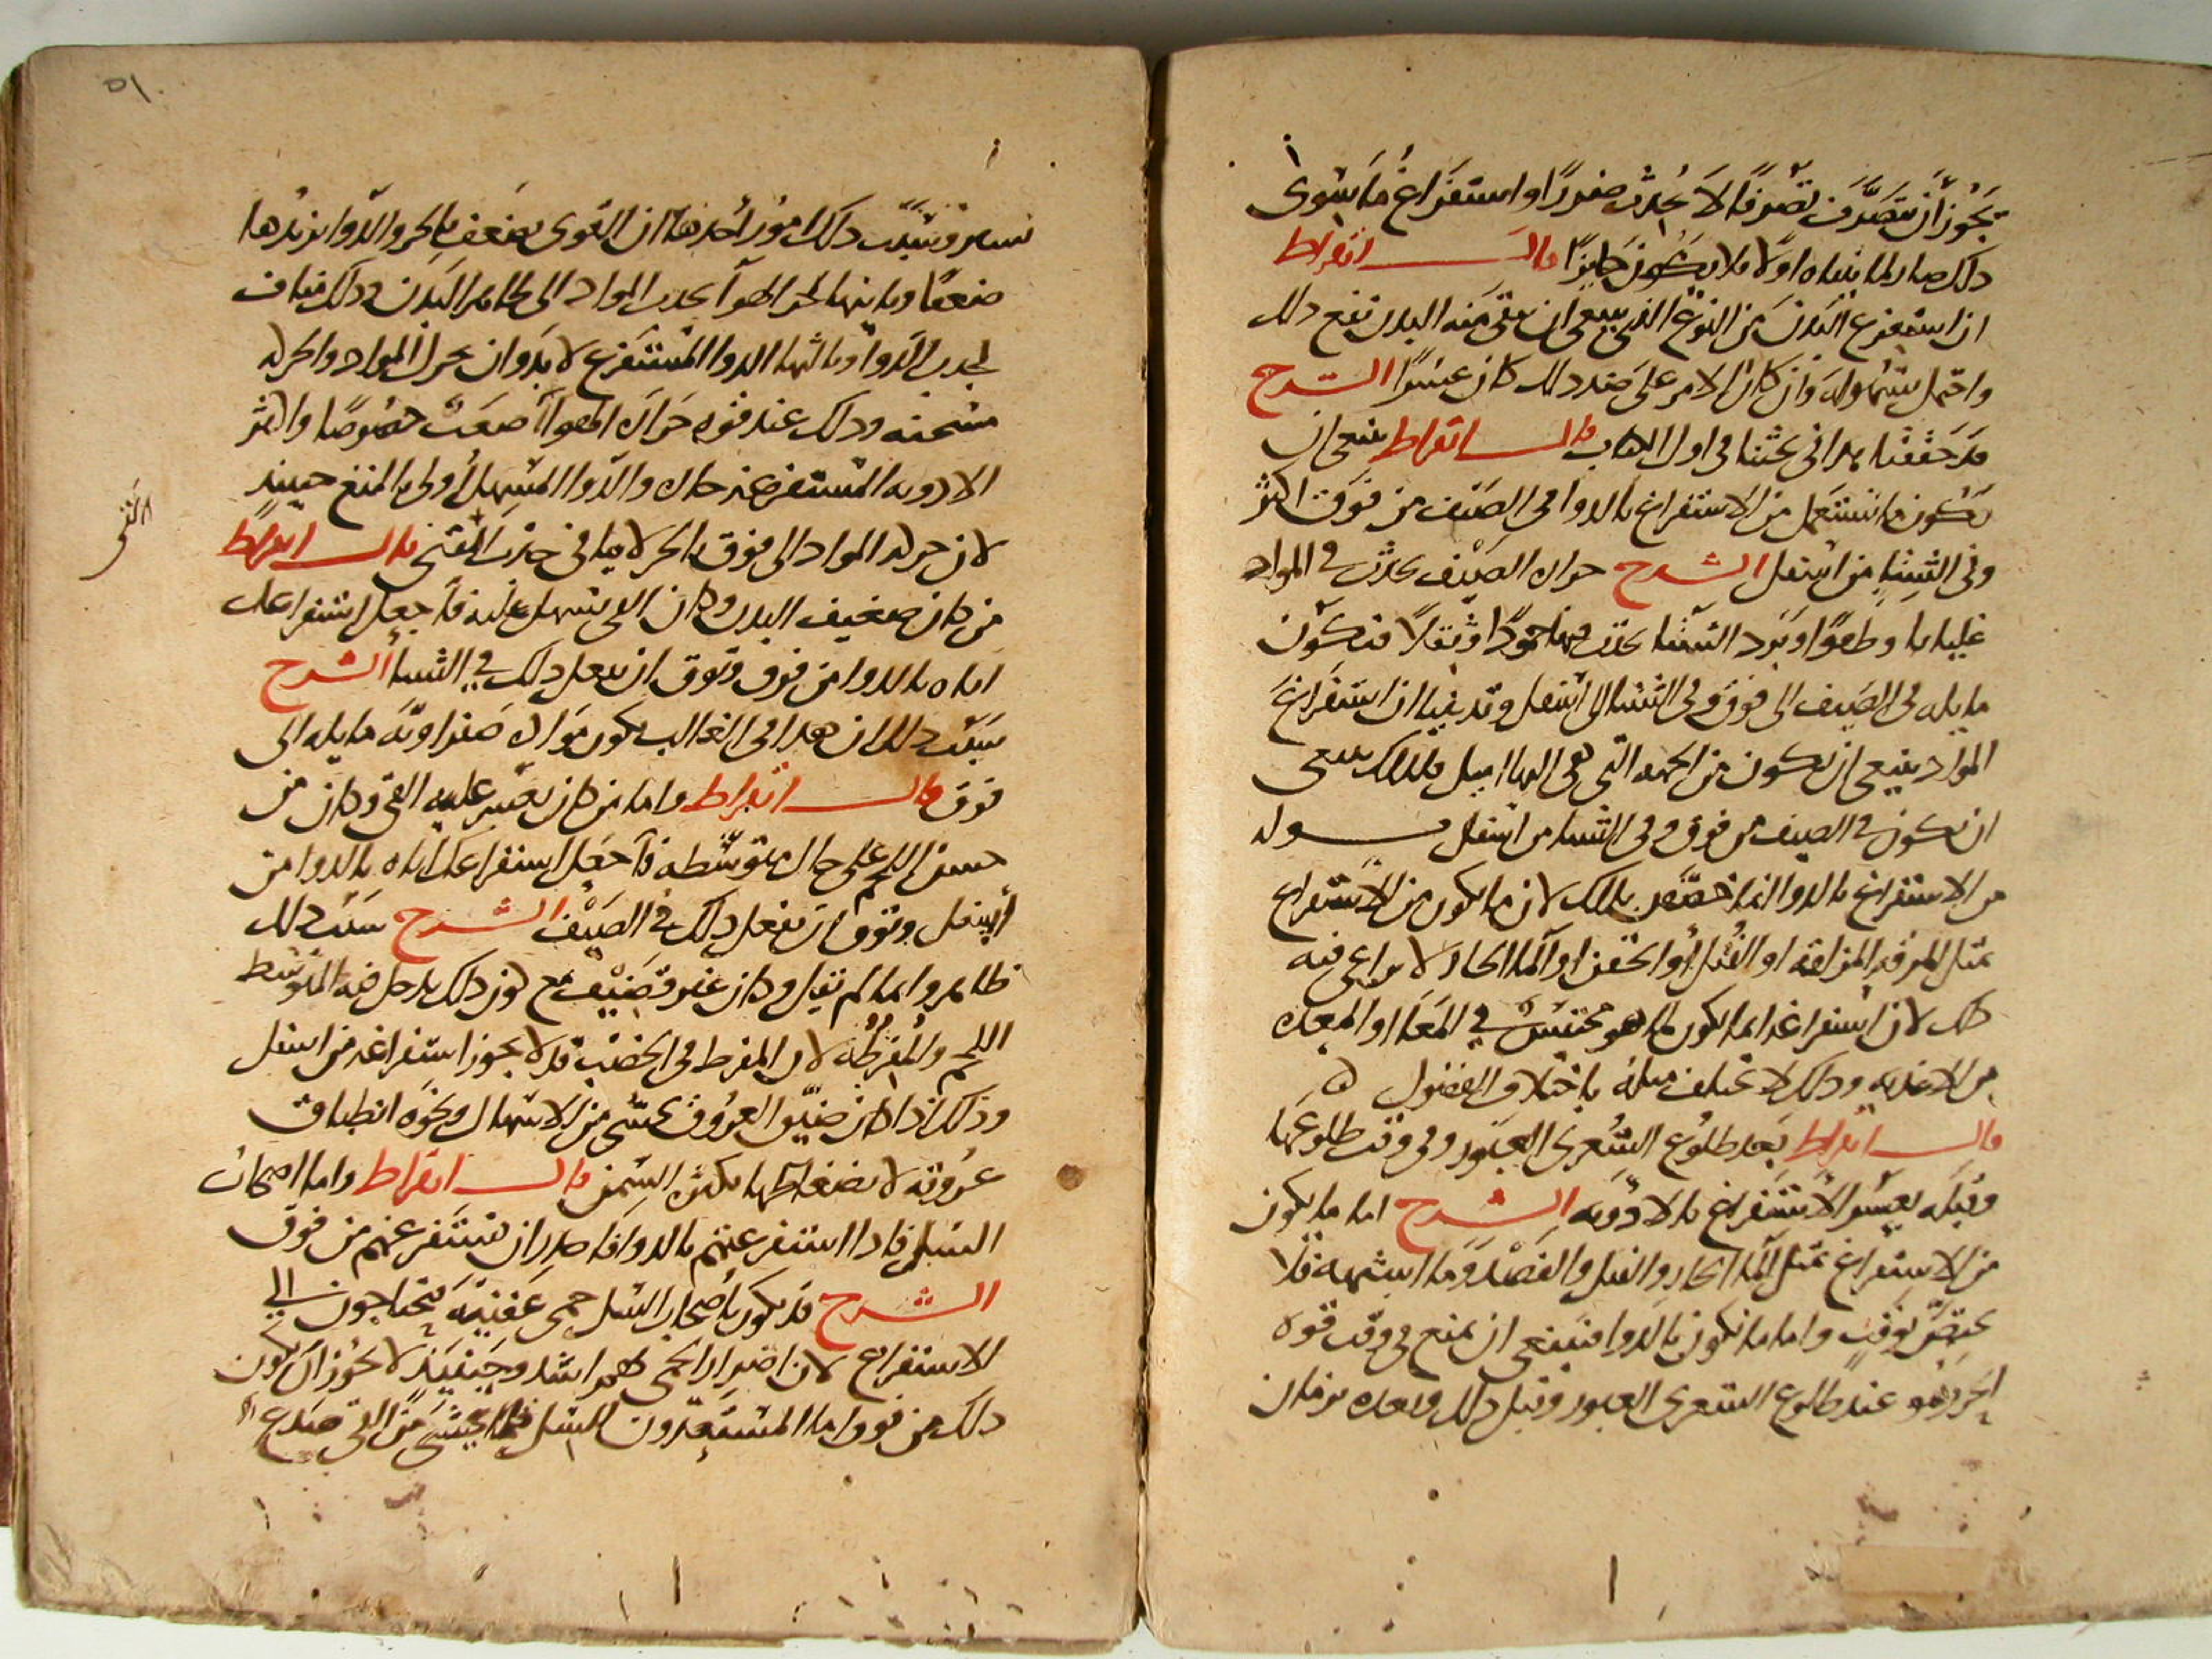 يجوز أن يتصرف تصرفا لا يحدث ضررا واستفراغ ما سوى
ذلك ضار لما بيناه اولا فلا يكون جايزا قال ابقراط
ان استفرغ البدن من النوع الذي ينبغي ان ينقى منه البدن نفع ذلك
واحتمل بسهولة وان كان الامر على ضد ذلك كان عسرا الشرح
قد حققنا هذا في بحثنا في اول الكتاب قال ابقراط ينبغي ان
يكون ما يستعمل من الاستفراغ بالدوا في الصيف من فوق اكثر
وفي الشتا من اسفل الشرح حرارة الصيف تحدث في المواد
غليانا وطفوا وبرد الشتا يحدث فيها جمودا وثقلا فتكون
مايلة في الصيف الى فوق وفي الشتا الى اسفل وقد بينا ان استفراغ
المواد ينبغي ان يكون من الجهة التي هي اليها اميل فلذلك ينبغي
ان يكون في الصيف من فوق وفي الشتا من اسفل وقوله
من الاستفراغ بالدوا انما خصص بذلك لان ما يكون من الاستفراغ
بمثل المرقة المزلقة او الفتل أو الحقن او الما الحار لا يراعى فيه
ذلك لان استفراغه انما يكون لما هو محتبس في المعا او المعدة
من الاغذية وذلك لا يختلف ميله باختلاف الفصول ه
قال ابقراط بعد طلوع الشعرى العبور وفي وقت طلوعها
وقبله يعسر الاستفراغ بالادوية الشرح اما ما يكون
من الاستفراغ بمثل الما الحار والفتل والفصد وما اشبهه فلا
يختص بوقت واما ما يكون بالدوا فينبغي ان يمنع في وقت قوة
الحر وهو عند طلوع الشعرى العبور وقبل ذلك وبعده بزمان
٥١
يسير وسبب ذلك امور أحدها ان القوى تضعف بالحر والدوا يزيدها
ضعفا وثانيها الحر الهوا يجذب المواد الى ظاهر البدن وذلك مناف
لجذب الدوا وثالثها الدوا المستفرغ لا بد وان يحرك المواد والحركة
مسخنة وذلك عند قوة حرارة الهوا أصعب خصوصا واكثر
الادوية المستفرغة حارة والدوا المسهل أولى بالمنع حينئذ
لان حركة المواد الى فوق بالحر لا ينافي جذب المقيئ قال ابقراط
القيئ
من كان ضعيف البدن وكان القي يسهل عليه فاجعل استفراغك
اياه بالدوا من فوق وتوق ان تفعل ذلك في الشتا الشرح
سبب ذلك ان هذا في الغالب يكون مواده صفراوية مايلة الى
فوق قال ابقراط واما من كان يعسر عليه القي وكان من
حسن اللحم على حال متوسطة فاجعل استفراغك اياه بالدوا من
أسفل وتوق أن تفعل ذلك في الصيف الشرح سبب ذلك
ظاهر وانما لم يقل وكان غير قضيف مع كون ذلك يدخل فيه المتوسط
اللحم والمفرطه لان المفرط في الخصب قد لا يجوز استفراغه من اسفل
وذلك اذا كان ضيق العروق يخشى من الاسهال ونحوه انطباق
عروقه لانضغاطها بكثرة السمن قال ابقراط واما اصحاب
السل فاذا استفرغتهم بالدوا فاحذر ان تستفرغهم من فوق
الشرح قد يكون باصحاب السل حمى عفنية يحتاجون الى
الاستفراغ لان اضرار الحمى بهم اشد وحينئذ لا يجوز ان يكون
ذلك من فوق واما المستعدون للسل فلما يخشى من القي صدع